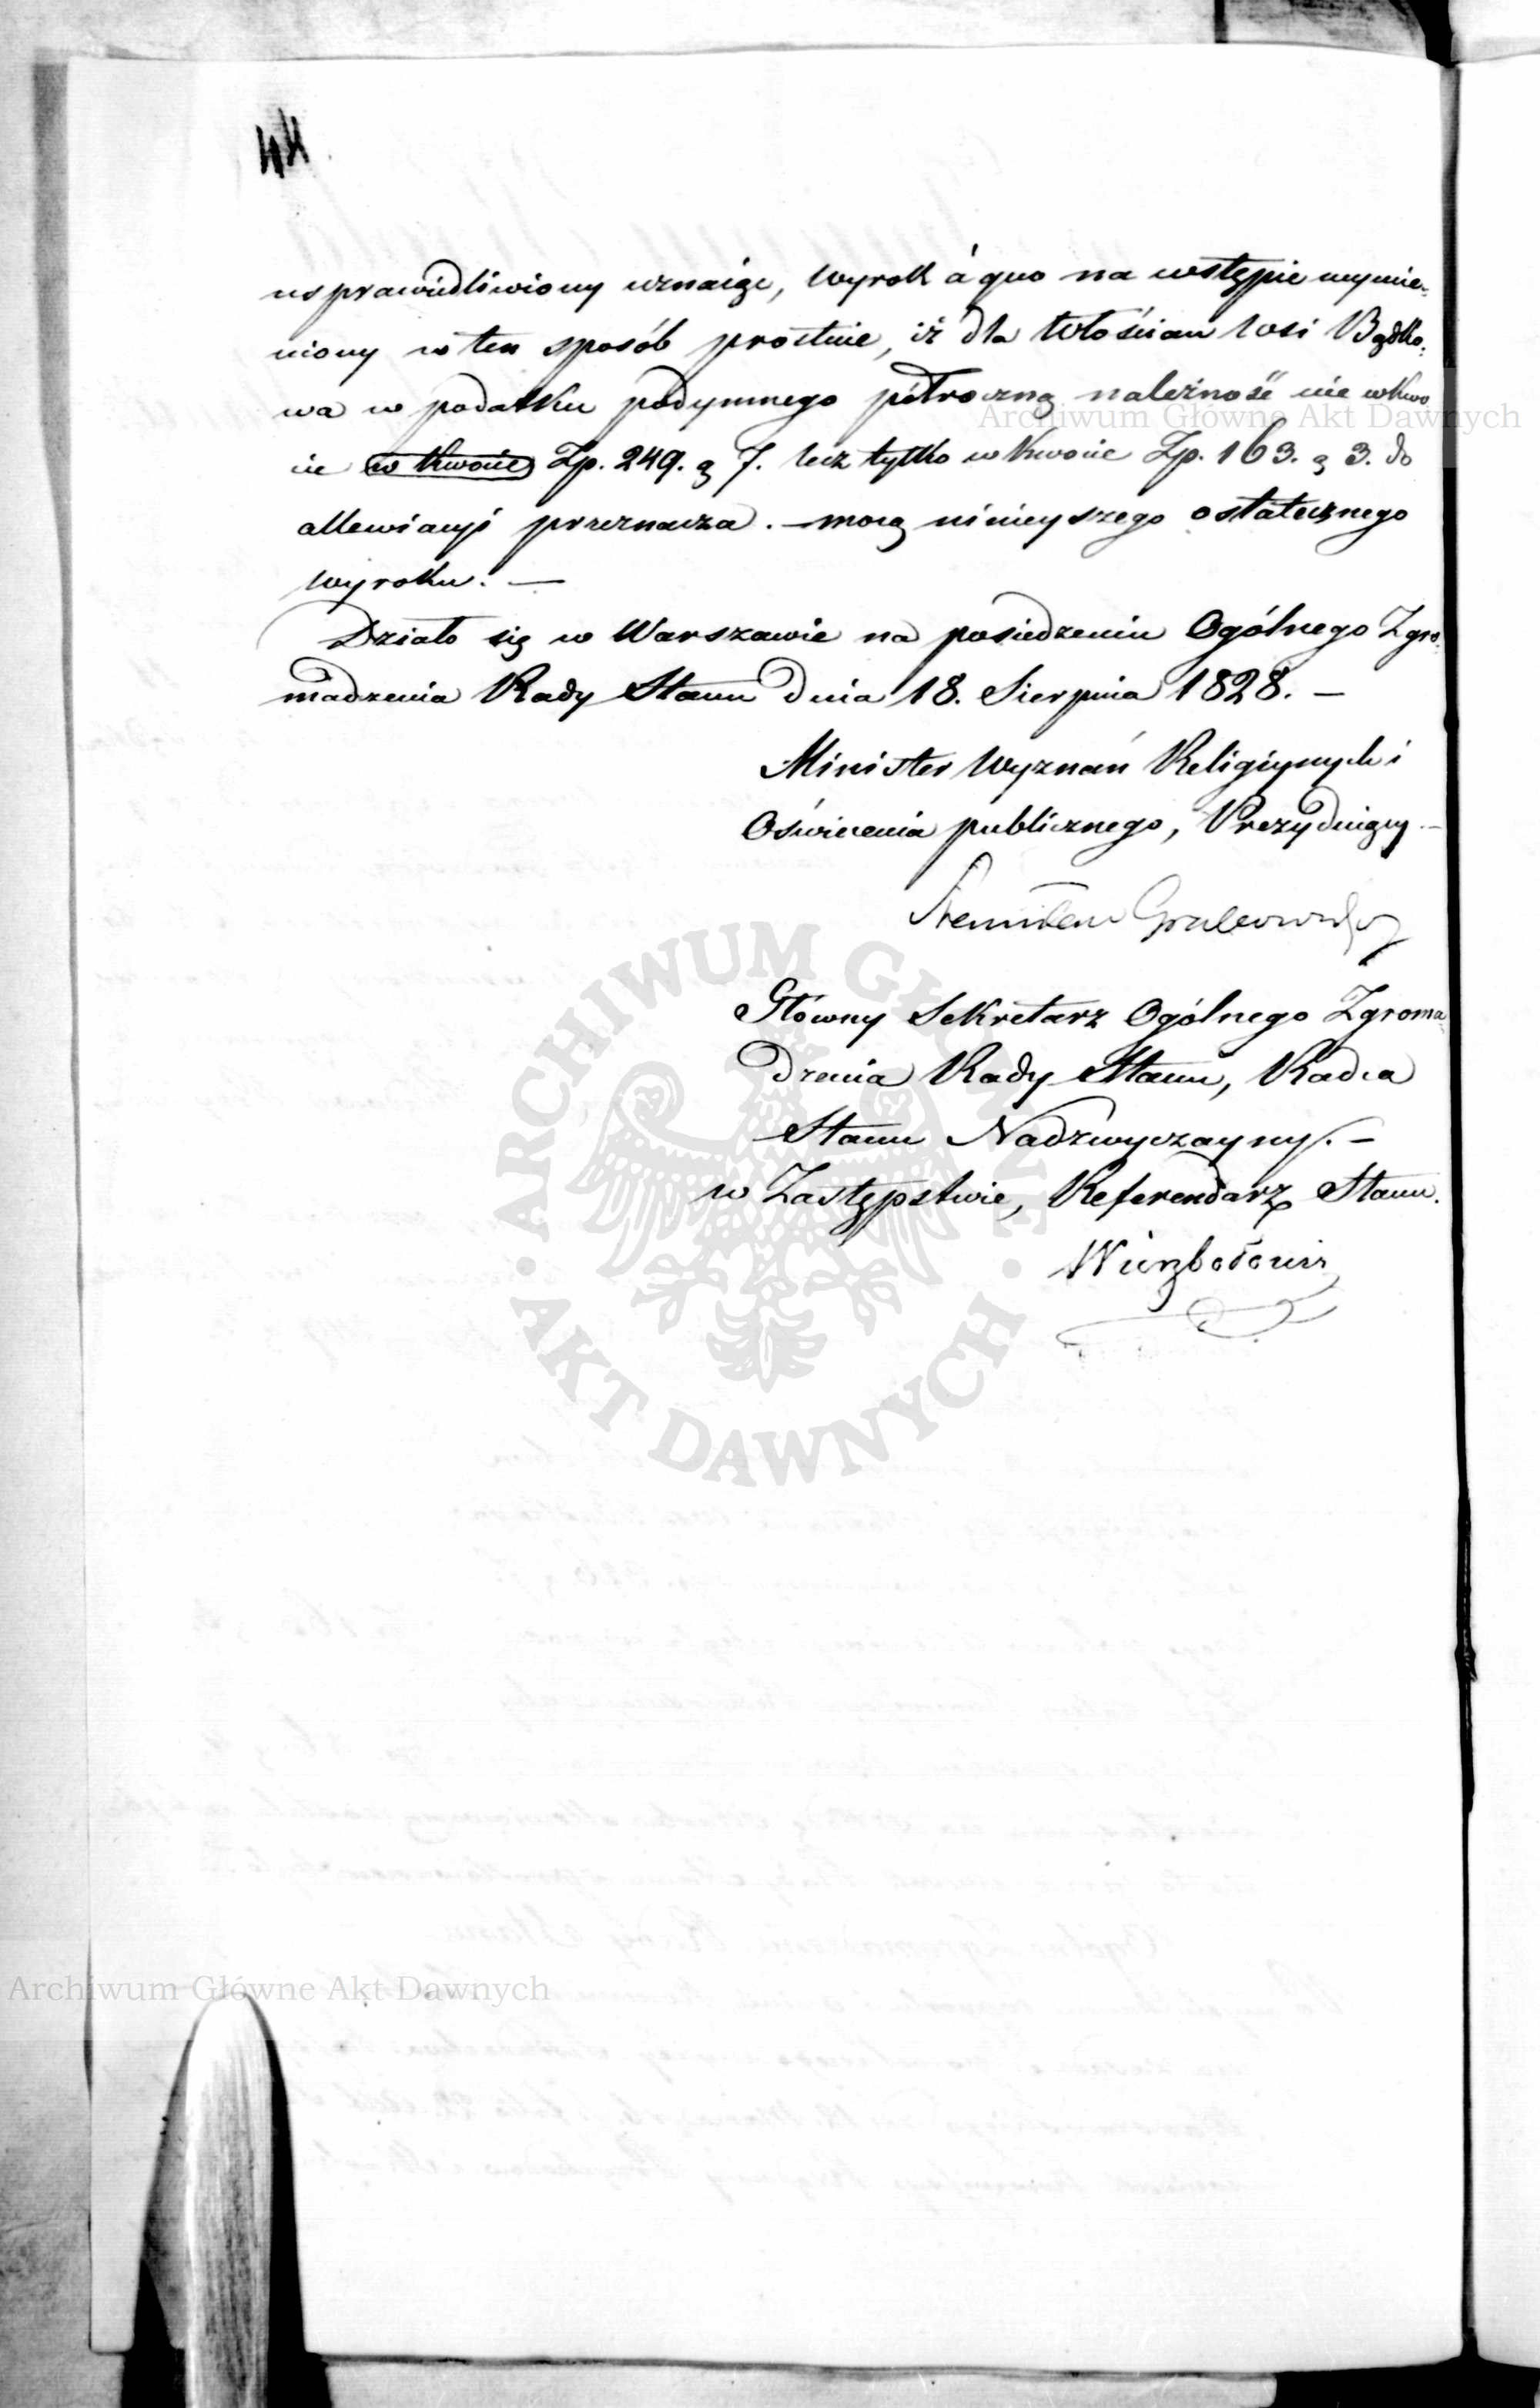 44
usprawiedliwiony uznaiąc, Wyrok á quo na wstępie wymie-
niony w ten sposób prostuie, iż dla Włościan Wsi Bądko-
wa w podatku podymnego półroczną należność nie wkwo
cie w kwocie Zp. 249. g 7. lecz tylko w kwocie Zp. 163. g 3. do
allewiacyi przeznacza. — mocą ninieyszego ostatecznego
Wyroku. —
Działo się w Warszawie na posiedzeniu Ogólnego Zgro-
madzenia Rady Stanu dnia 18. Sierpnia 1828. —
Minister Wyznań Religiynych i
Oświecenia publicznego, Prezyduiący —
Stanisław Grabowski
Główny Sekretarz Ogólnego Zgroma-
dzenia Rady Stanu, Radca
Stanu Nadzwyczayny. —
w Zastępstwie, Referendarz Stanu.
Wierzbołowicz
Archiwum Główne Akt Dawnych
ARCHIWUM GŁÓWNE · AKT DAWNYCH ·
Archiwum Główne Akt Dawnych